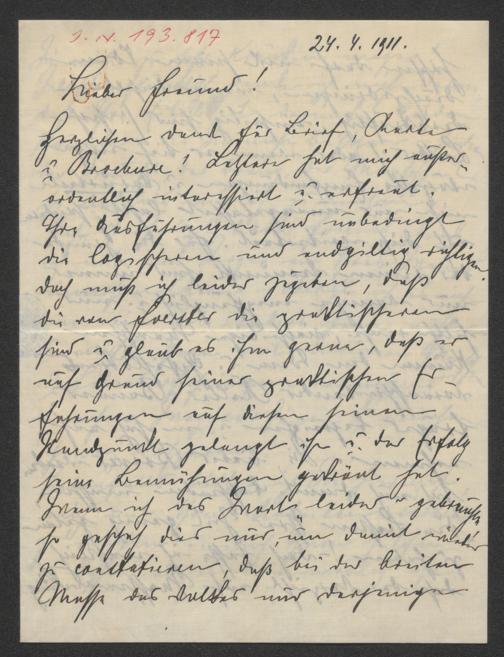 I. N. 193.817
24. 4. 1911.
Lieber Freund!
Herzlichen Dank für Brief, Karte
u. Brochure! Letztere hat mich außer-
ordentlich interessiert u. erfreut.
Ihre Ausführungen sind unbedingt
die logischeren und endgiltig richtigen.
doch muß ich leider zugeben, daß
die von Foerster die praktischeren
sind u. glaub es ihm gerne, daß er
auf Grund seiner praktischen Er-
fahrungen auf diesen seinen
Standpunkt gelangt ist u. der Erfolg
seine Bemühungen gekrönt hat.
Wenn ich das Wort leider gebrauchte
so geschah dies nur, um damit wieder
zu constatieren, daß bei der breiten
Masse des Volkes nur derjenige